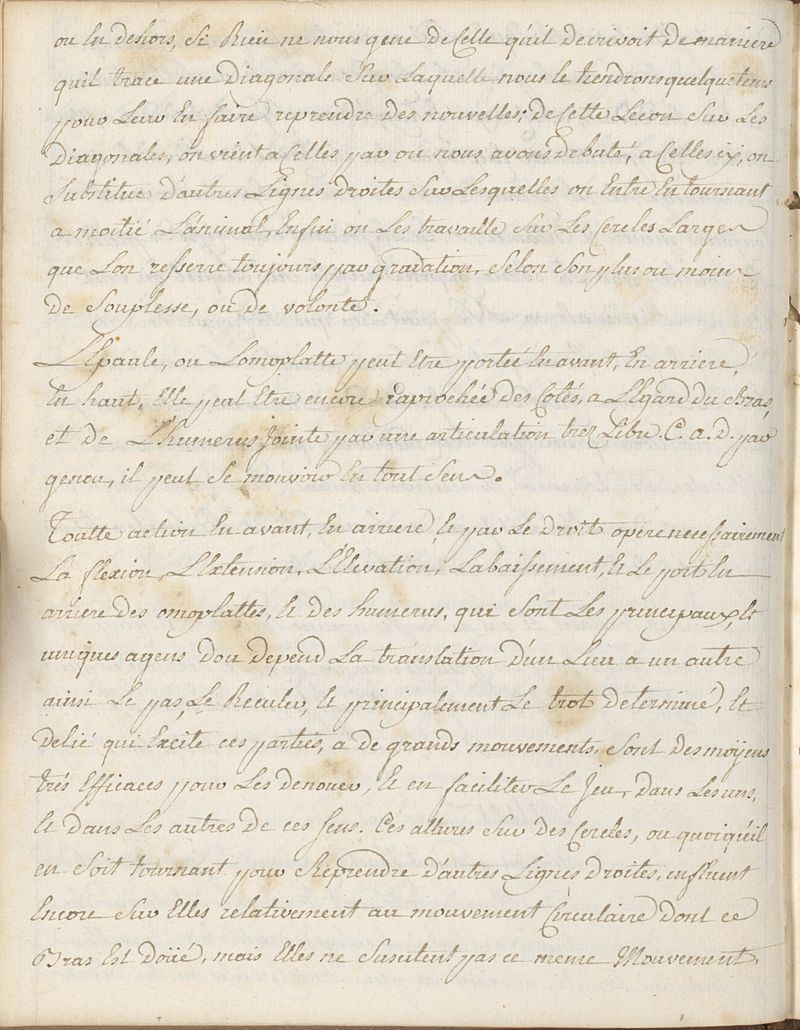 ou En dehors, Si Rien ne nous gene de Celle qu'il decrivoit de maniere
quil trace une Diagonale Sur Laquelle nous le tiendrons quelque tems
pour Leur En faire reprendre des nouvelles; de Cette Lecon Sur Les
Diagonales, on vient a Celles par ou nous avons debuté, a Celles ci, on
Substitue d'autres Lignes droites Sur Lesquelles on Entre En tournant
a moitié L'animal, Enfin on Les travaille Sur Les Cercles Larges
que Lon resserre toujours par gradation, Sélon Son plus ou moins
de Souplesse, ou de volonté.
L'Epaule, ou Lomoplatte peut Etre portéé En avant, En arriere,
En haut, Elle peut Etre encore raprochée des Cotés, a L'Egard du Bras,
et de L'humerus Jointe par une articulation trez Libre. C. a. d. par
genou, il peut Se mouvoir En tout Sens.
Toutte action En avant, En arriere, & par Le droit opere necessairement
La flexion, L'Extension, L'Elevation, Labaissement, & Le port En
arriere des omoplattes, & des humerus, qui Sont Les principaux, &
uniques agens dou depend La translation d'un Lieu a un autre
ainsi Le pas, Le Reculer, & principalement Le trot determiné, &
delié qui Excite ces parties, a de grands mouvements, Sont des moÿens
trés Efficaces pour Les denouer, & en faciliter Le Jeu, dans Les uns,
& dans Les autres de ces Sens. Ces allures Sur des Cercles, ou quoiqu'il
en Soit tournant pour Reprendre d'autres Lignes Droites, influent
Encore Sur Elles relativement au mouvement Circulaire dont ce
Bras Est doüé, mais Elles ne Suscitent pas ce meme Mouvement,